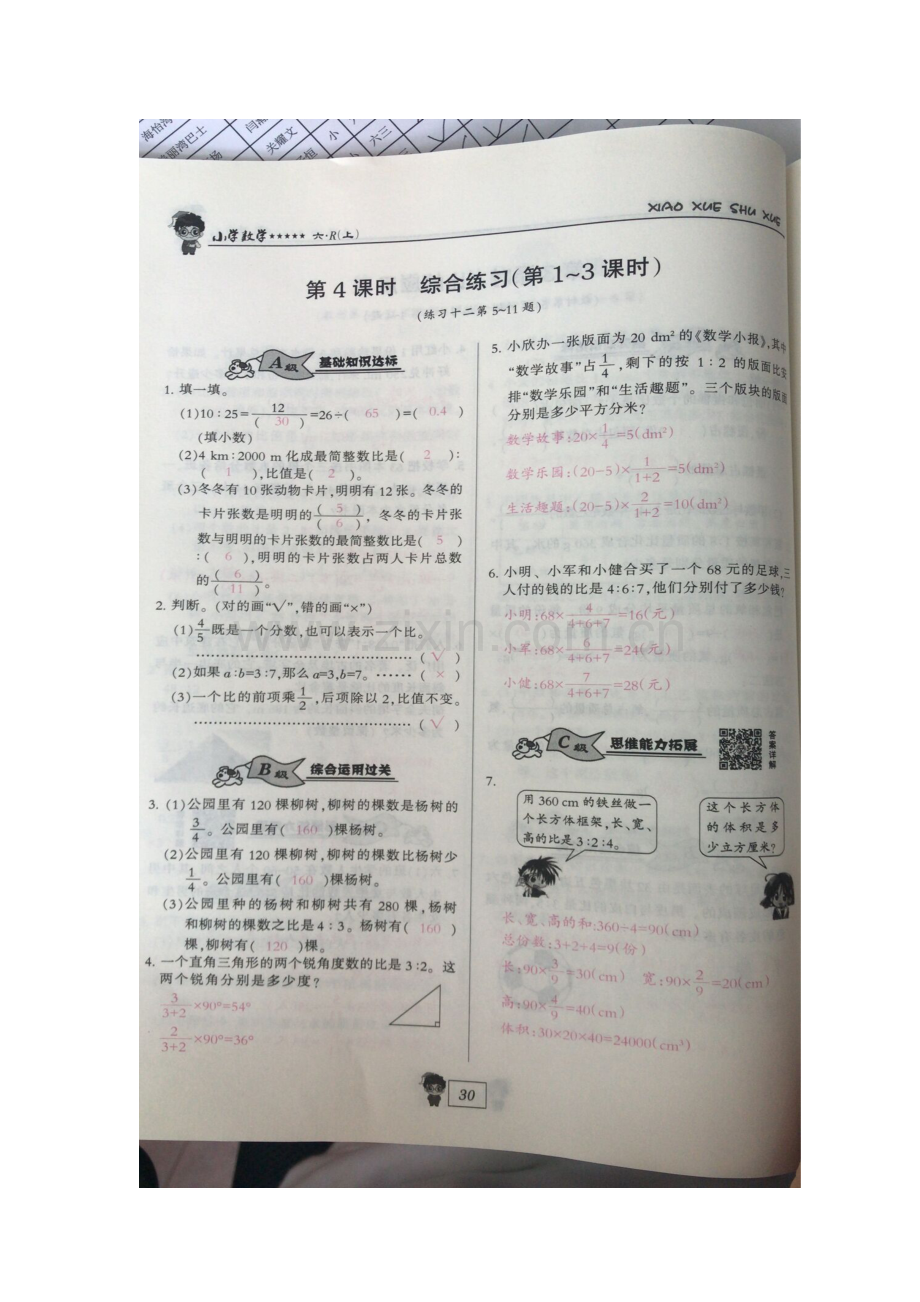 海怡湾
丽湾巴士
杨
闫
关耀文
恒
小
六三
小
XIAO XUE SHU XUE
小学数学★★★★★ 六·R(上)
第 4 课时 综合练习(第 1~3 课时)
(练习十二第 5~11 题)
A级 基础知识达标
1. 填一填。
(1)10∶25=12/( 30 )=26÷( 65 )=( 0.4 )
(填小数)
(2)4 km∶2000 m 化成最简整数比是( 2 )∶
( 1 ),比值是( 2 )。
(3)冬冬有 10 张动物卡片,明明有 12 张。冬冬的
卡片张数是明明的( 5 )/( 6 ),冬冬的卡片张
数与明明的卡片张数的最简整数比是( 5 )
∶( 6 ),明明的卡片张数占两人卡片总数
的( 6 )/( 11 )。
2. 判断。(对的画“√”,错的画“×”)
(1)4/5既是一个分数,也可以表示一个比。
……………………………………( √ )
(2)如果 a∶b=3∶7,那么 a=3,b=7。……( × )
(3)一个比的前项乘1/2,后项除以 2,比值不变。
……………………………………( √ )
B级 综合运用过关
3. (1)公园里有 120 棵柳树,柳树的棵数是杨树的
3/4。公园里有( 160 )棵杨树。
(2)公园里有 120 棵柳树,柳树的棵数比杨树少
1/4。公园里有( 160 )棵杨树。
(3)公园里种的杨树和柳树共有 280 棵,杨树
和柳树的棵数之比是 4∶3。杨树有( 160 )
棵,柳树有( 120 )棵。
4. 一个直角三角形的两个锐角度数的比是 3∶2。这
两个锐角分别是多少度?
3/(3+2)×90°=54°
2/(3+2)×90°=36°
5. 小欣办一张版面为 20 dm²的《数学小报》,其中
“数学故事”占1/4,剩下的按 1∶2 的版面比安
排“数学乐园”和“生活趣题”。三个版块的版面
分别是多少平方分米?
数学故事:20×1/4=5(dm²)
数学乐园:(20-5)×1/(1+2)=5(dm²)
生活趣题:(20-5)×2/(1+2)=10(dm²)
6. 小明、小军和小健合买了一个 68 元的足球,三
人付的钱的比是 4∶6∶7,他们分别付了多少钱?
小明:68×4/(4+6+7)=16(元)
小军:68×6/(4+6+7)=24(元)
小健:68×7/(4+6+7)=28(元)
C级 思维能力拓展
答案详解
7.
用 360 cm 的铁丝做一
个长方体框架,长、宽、
高的比是 3∶2∶4。
这个长方体
的体积是多
少立方厘米?
长、宽、高的和:360÷4=90(cm)
总份数:3+2+4=9(份)
长:90×3/9=30(cm) 宽:90×2/9=20(cm)
高:90×4/9=40(cm)
体积:30×20×40=24000(cm³)
30
www.zixin.com.cn